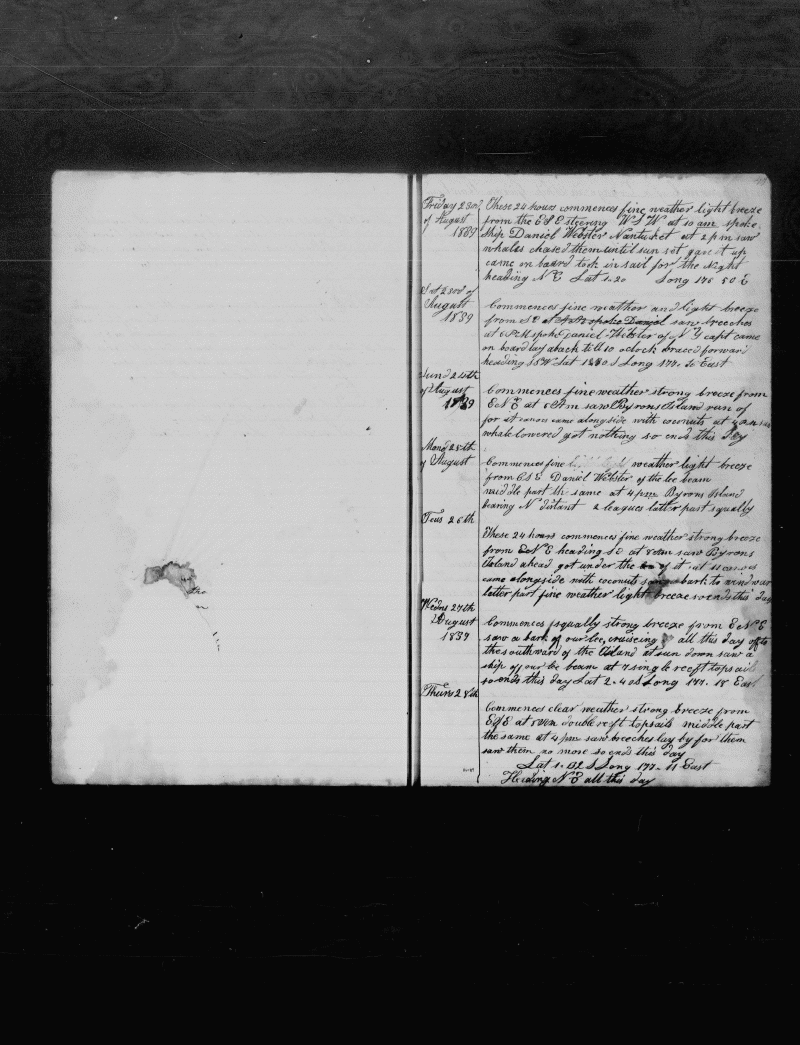 Friday 23rd of August 1839
These 24 hours commences fine weather light breeze
from the ESE steering WSW at 10 am spoke
Ship Daniel Webster Nantucket at 2 pm saw
whales chased them until sun set gave it up
came on board took in sail for the Night
heading NE Lat 1.20 Long 176 50 E
of August 1839
Commences fine weather and light breeze
from SE at spoke Daniel saw breeches
at 6 PM spoke Daniel Webster of N capt came
on board lay aback till 10 oclock braced forward
heading Lat S Long 177. East
Sund 24th of August 1839
Commences fine weather strong breeze from
ENE at PM saw Byrons Island run of
for it canoes came alongside with coconuts at 4
whale lowered got nothing so ends this Day
Mond 25th of August
Commences fine weather light breeze
from ESE Daniel Webster of the lee beam
middle part the same at 4 pm Byrons Island
bearing N distant 2 leagues latter part squally
Teus 26th
These 24 hours commences fine weather strong breeze
from ENE heading SE at saw Byrons
Island ahead got under the of it at 11 canoes
came alongside with coconuts bark to windward
latter part fine weather light breeze so ends this day
Wedns 27th August 1839
Commences squally strong breeze from ENE
saw a bark of our lee cruiseing all this day of to
the southward of the Island at sun down saw a
ship of our lee beam at 7 single reeft topsails
so ends this day Lat 2.40 S Long 177. 18 East
Thurs 28th
Commences clear weather strong breeze from
ESE at double reeft topsails middle part
the same at 4 pm saw breeches lay by for them
saw them no more so ends this day
Lat 1. S Long 177. 11 East
Heading NE all this day